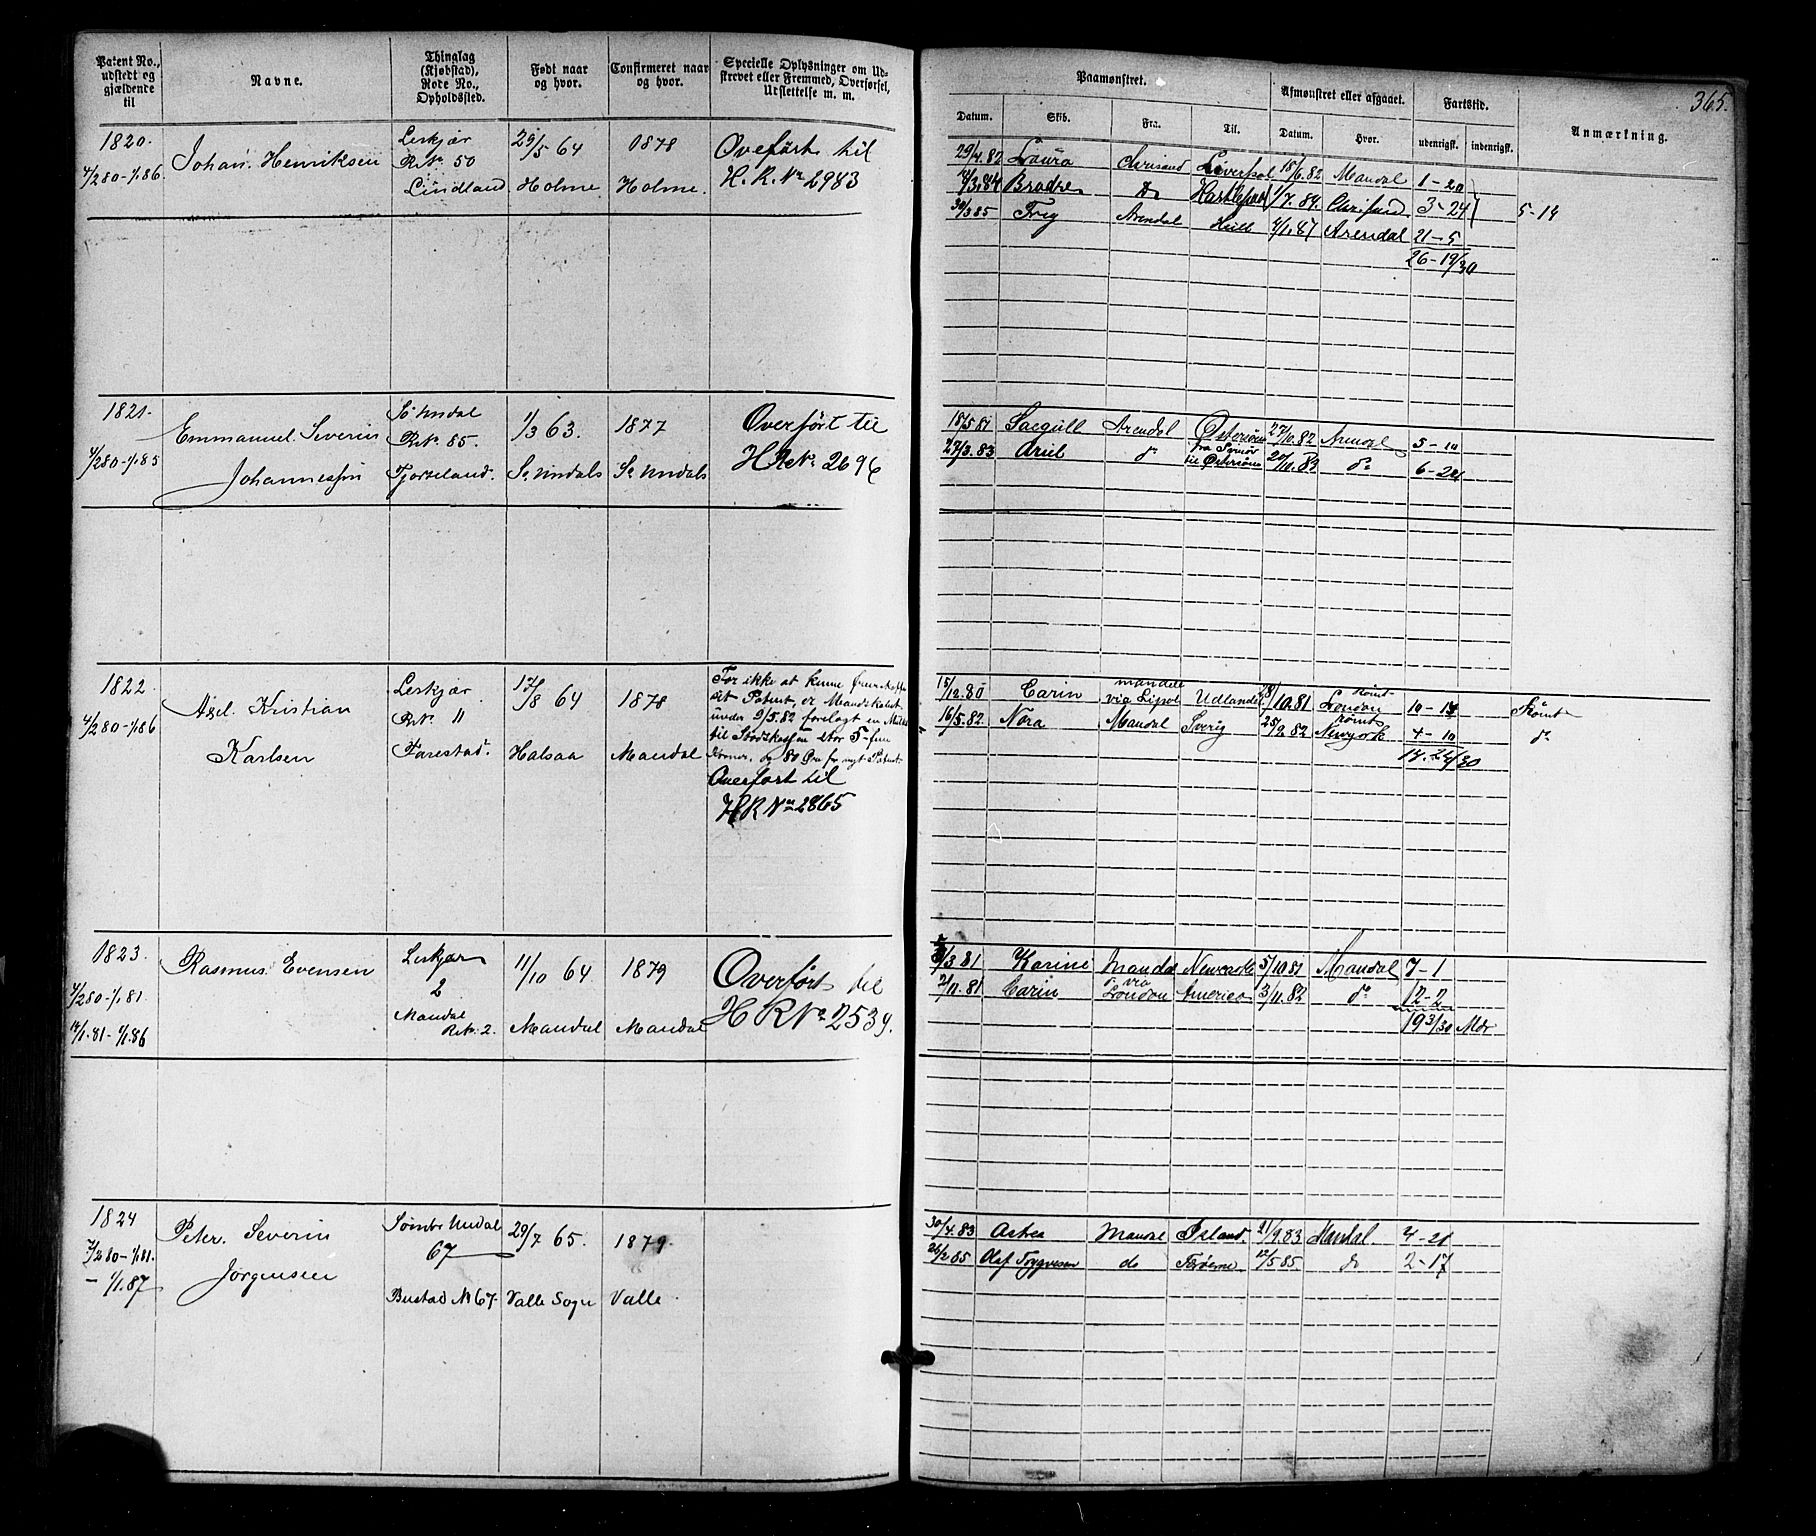 365.
Patent No., udstedt og gjældende til
Navne.
Thinglag (Kjøbstad), Rode No., Opholdssted.
Født naar og hvor.
Confirmeret naar og hvor.
Specielle Oplysninger om Udskrevet eller Fremmed, Overførsel, Udslettelse m. m.
Paamønstret.
Afmønstret eller afgaaet.
Fartstid.
Anmærkning.
Datum. Skib. Fra. Til. Datum. Hvor. udenrigsk. indenrigsk.
1820. Johan Henriksen Leskjær 29/5 64 1878 Oveført til
4/2 80-1/1 86. R.No. 50
Lindland Holme Holme. H. R. No 2983
29/4.82 Laura Chrisand Liverpol 18/6.82 Mandal 1-20
Brødre Do Hartlepool 1/7.84. Chrisand. 3-24 5-14
30/3 85 Trig Arendal Hull 4/1.87 Arendal 21-5
26-19/30
1821. Emmanuel Severin Sø Undal 1/3 63. 1877 Overført til
4/2 80-1/1 85 R.No. 85. HRNo. 2696
Johannessen Sø Undals Sø Undals
18/5 81 Arendal Østersøen 27/10.82 5-10
27/3.83 Ariel do til Østersøen do 6-24
1822. Axel Kristian Leskjær 17/8 64 1878 For ikke at kunne
4/2 80-1/1 86 R.No. 11 sit Patent, er Mandskabet
Karlsen Farestad. Halsaa Mandal under 9/5.82 forelagt en Mulkt
til Statskassen stor 5 fem
Kroner, og 80 Øre for nyt Patent
Overført til
HRNo 2865
15/12.80 Carin via Udlandet 28/10.81 London 10-14 Rømt
16/5.82. Nora Mandal Sverig 25/9 82 rømt Newyork 4-10 do
14.24/30
1823. Rasmus Evensen Leskjær 11/10 64 1879 Overført til
4/2 80-1/1.81. 2
14/1.81-1/1.86 Mandal R.No. 2. Mandal Mandal HRNo 2539.
3.81 Karine Mandal Newcastle 5/10.81 Mandal 7-1
2/11.81 Carin do via London America 3/11.82 do 12-2
19 3/30 Mdr
1824 Peter Severin Søndre Undal 29/7 65. 1879.
7/2 80-1/1 81. 67
- 1/1.87 Jørgensen
Bustad No 67. Valle Sogn Valle.
30/4.83 Astrea Mandal Island. 21/9.83 Mandal. 4-21
26/2 85 Olaf Tryggvesen do Færøerne 12/5 85. do 2-17